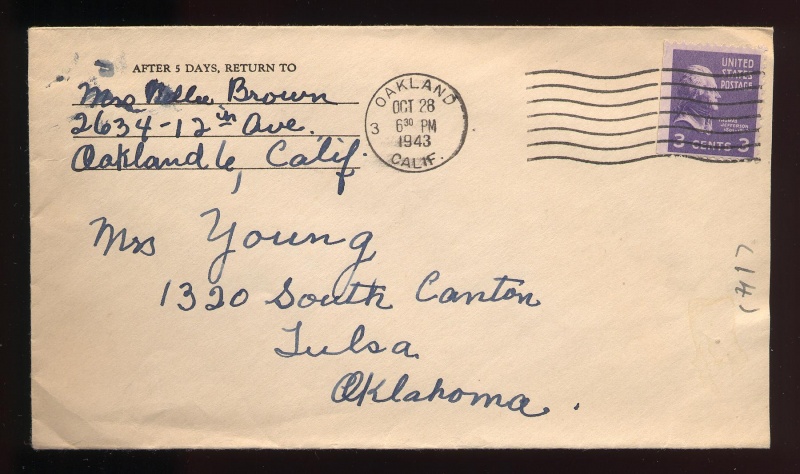 AFTER 5 DAYS, RETURN TO
Mrs Billie Brown
2634-12th Ave.
Oakland 6, Calif.
OAKLAND
3
OCT 28
6 30 PM
1943
CALIF.
UNITED
STATES
POSTAGE
THOMAS
JEFFERSON
3 CENTS 3
Mrs Young
1320 South Canton
Tulsa
Oklahoma.